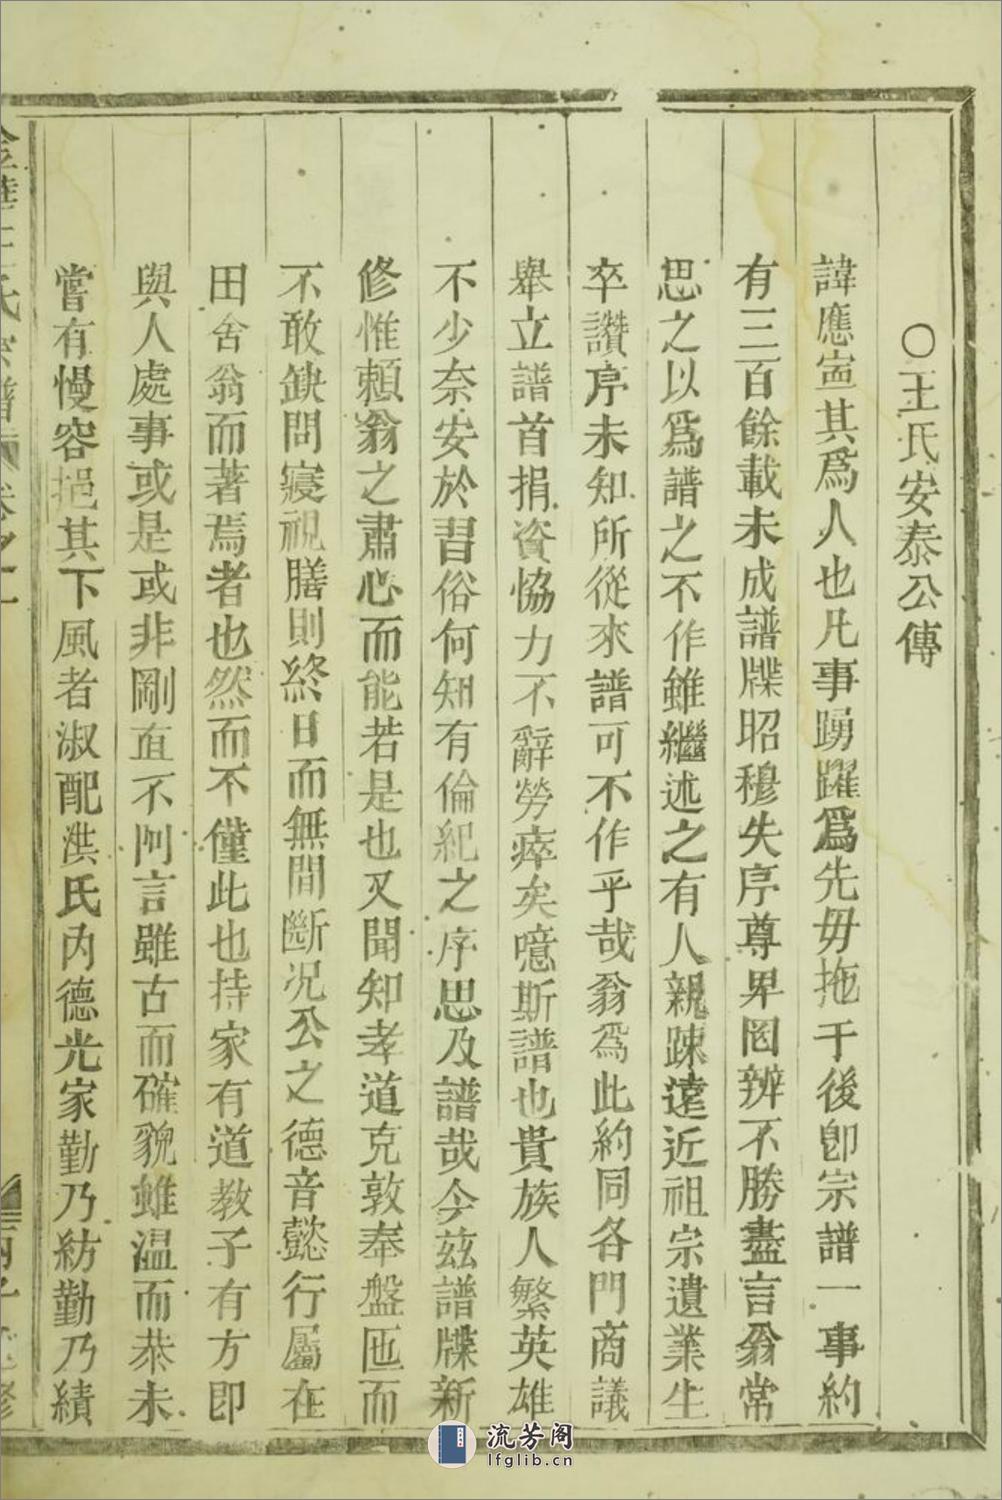 ○王氏安泰公傳
諱應寍其爲人也凡事踴躍爲先毋拖于後卽宗譜一事約
有三百餘載未成譜牒昭穆失序尊卑罔辨不勝盡言翁常
思之以爲譜之不作雖繼述之有人親踈遠近祖宗遺業生
卒讚序未知所從來譜可不作乎哉翁爲此約同各門商議
舉立譜首捐資恊力不辭勞瘁矣噫斯譜也貴族人繁英雄
不少奈安於習俗何知有倫紀之序思及譜哉今兹譜牒新
修惟賴翁之肅心而能若是也又聞知孝道克敦奉盤匜而
不敢缺問寢視膳則終日而無間斷况公之德音懿行屬在
田舍翁而著焉者也然而不僅此也持家有道教子有方即
與人處事或是或非剛直不阿言雖古而確貌雖温而恭未
嘗有慢容挹其下風者淑配洪氏内德光家勤乃紡勤乃績
金華王氏宗譜 卷之一
流芳阁
lfglib.cn